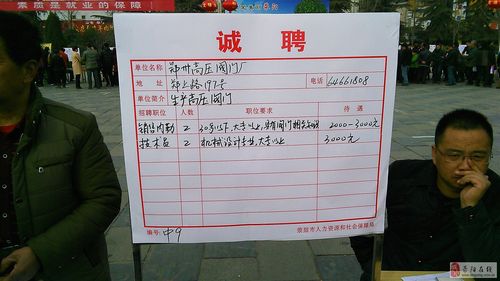 素质是就业的保障
诚 聘
单位名称 郑州高压阀门厂
地址 郑上路197号 电话 64661808
单位简介 生产高压阀门
招聘职位 人数 职位要求 待遇
销售内勤 2 30岁以下,大专以上, 2000-3000元
技术员 2 机械设计专业,大专以上 3000元
编号: 中9 荥阳市人力资源和社会保障局
荥阳在线